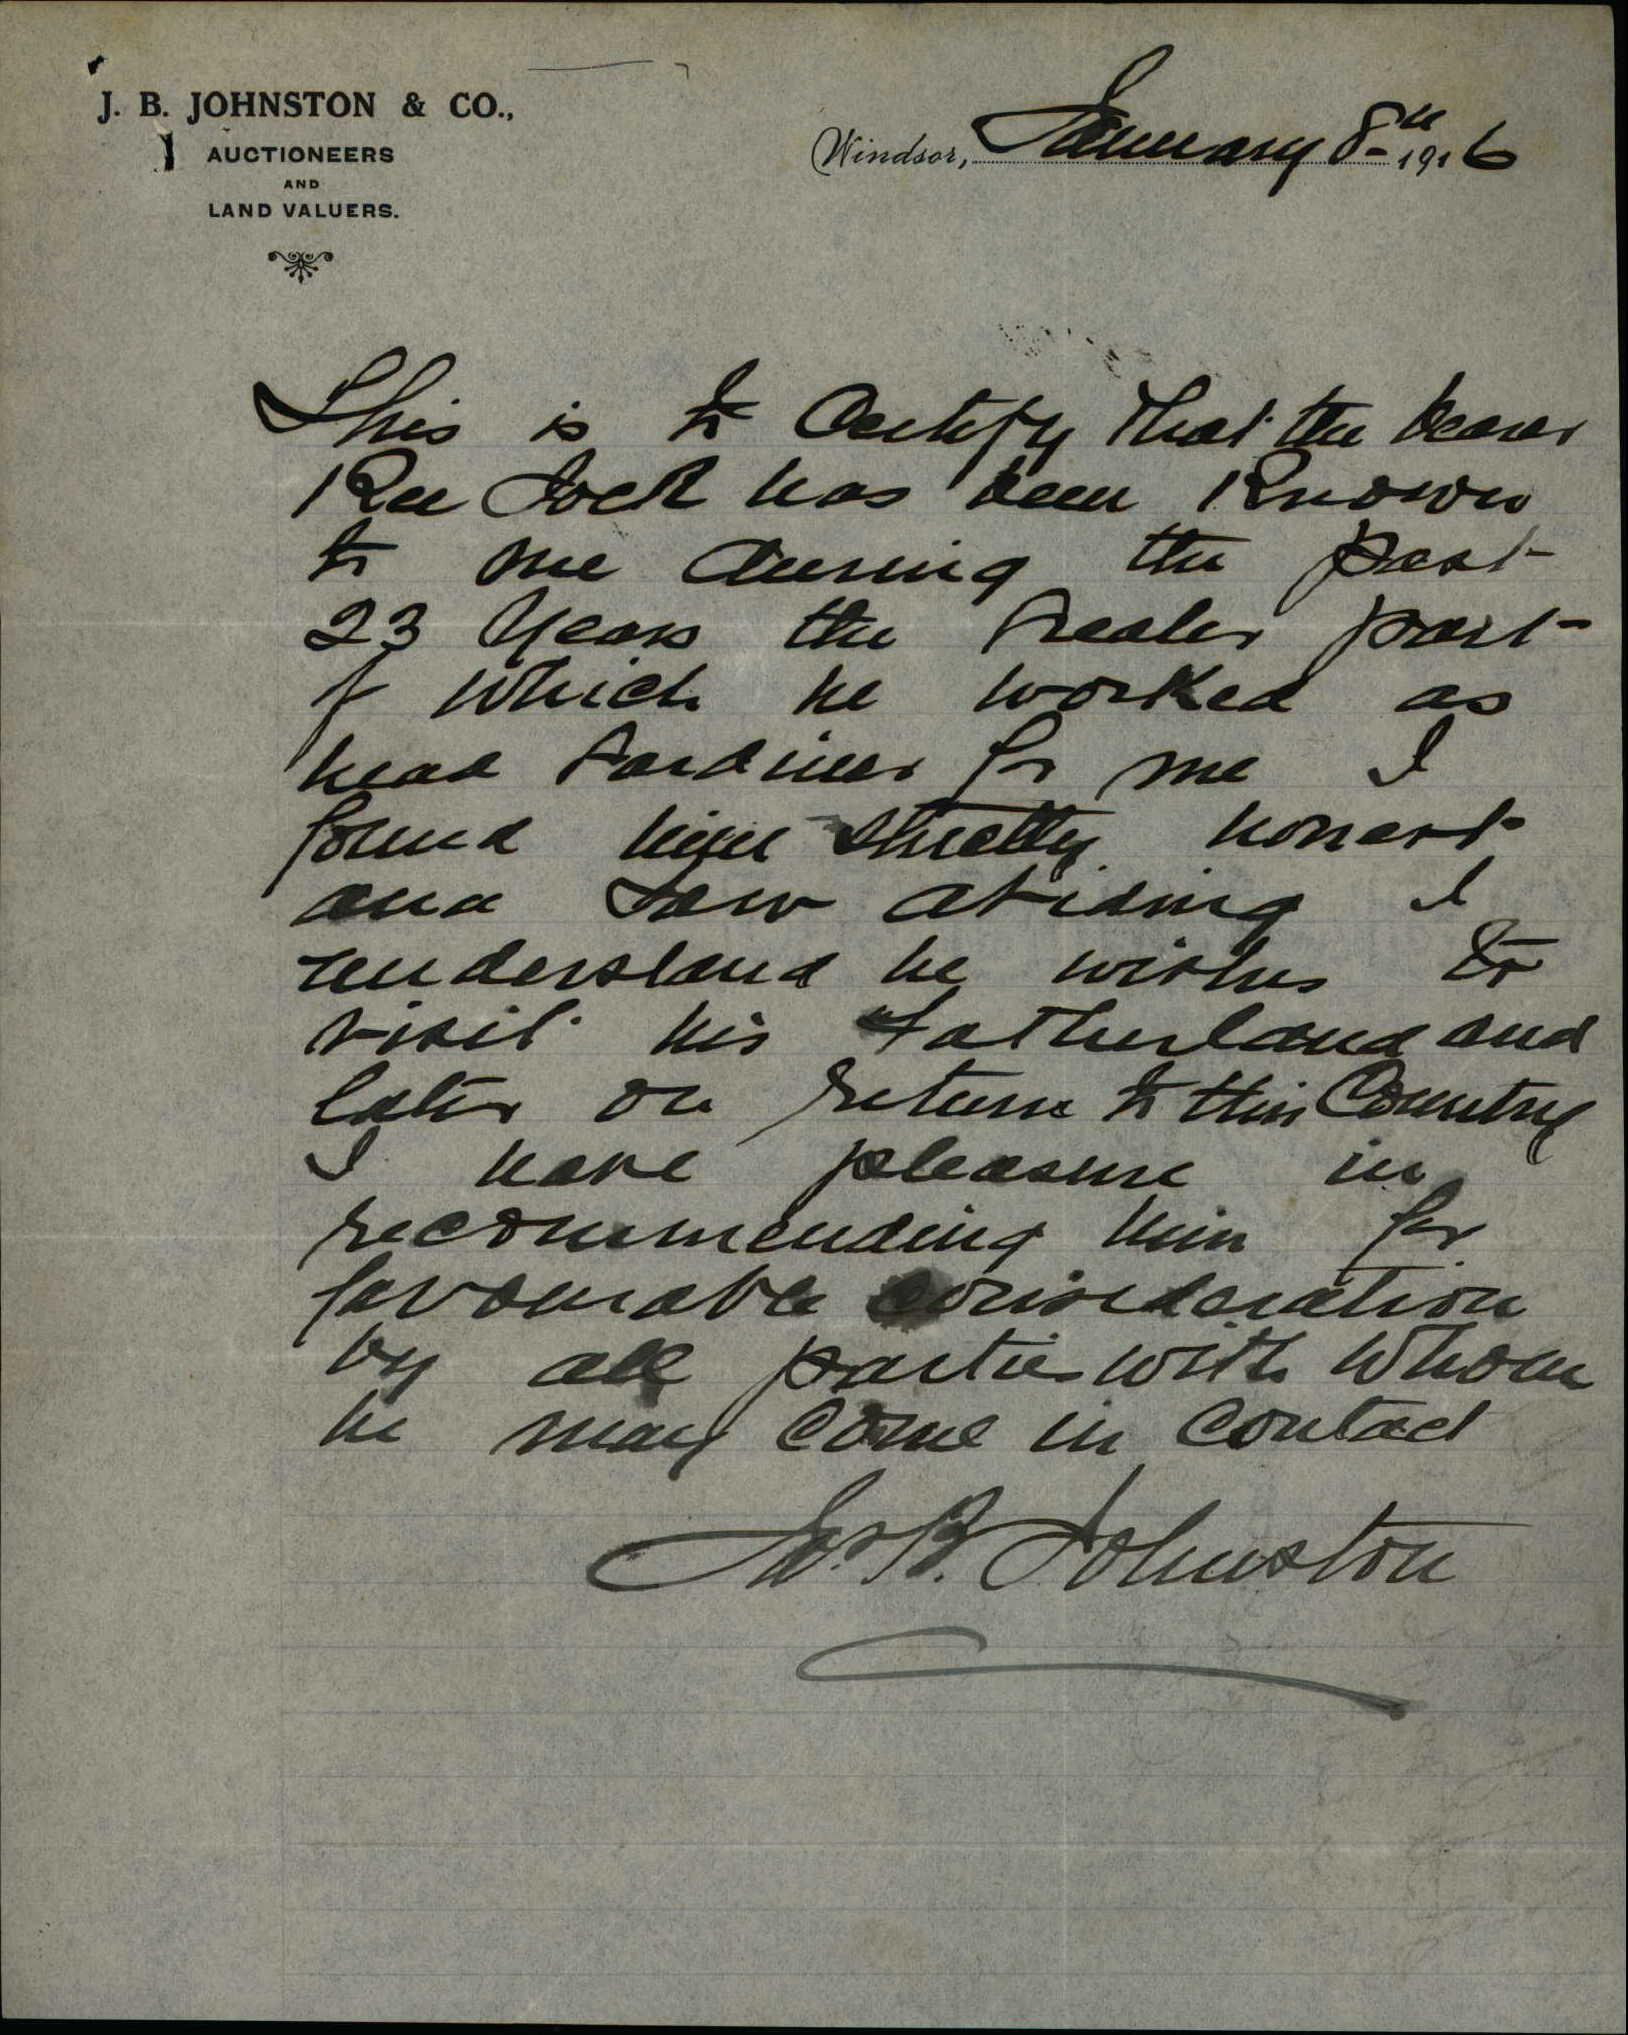 J. B. JOHNSTON & CO.,
AUCTIONEERS
AND
LAND VALUERS.
Windsor, January 8th 1916
This is to Certify that the bearer
Kee Jock has been Known
to me during the past
23 Years the Greater part
of which he worked as
head Gardiner for me I
found him strictly honest
and Law abiding I
understand he wishes to
visit his Fatherland and
later on return to this Country
I have pleasure in
recommending him for
favourable consideration
by all parties with whom
he may come in contact
Jos. B. Johnston